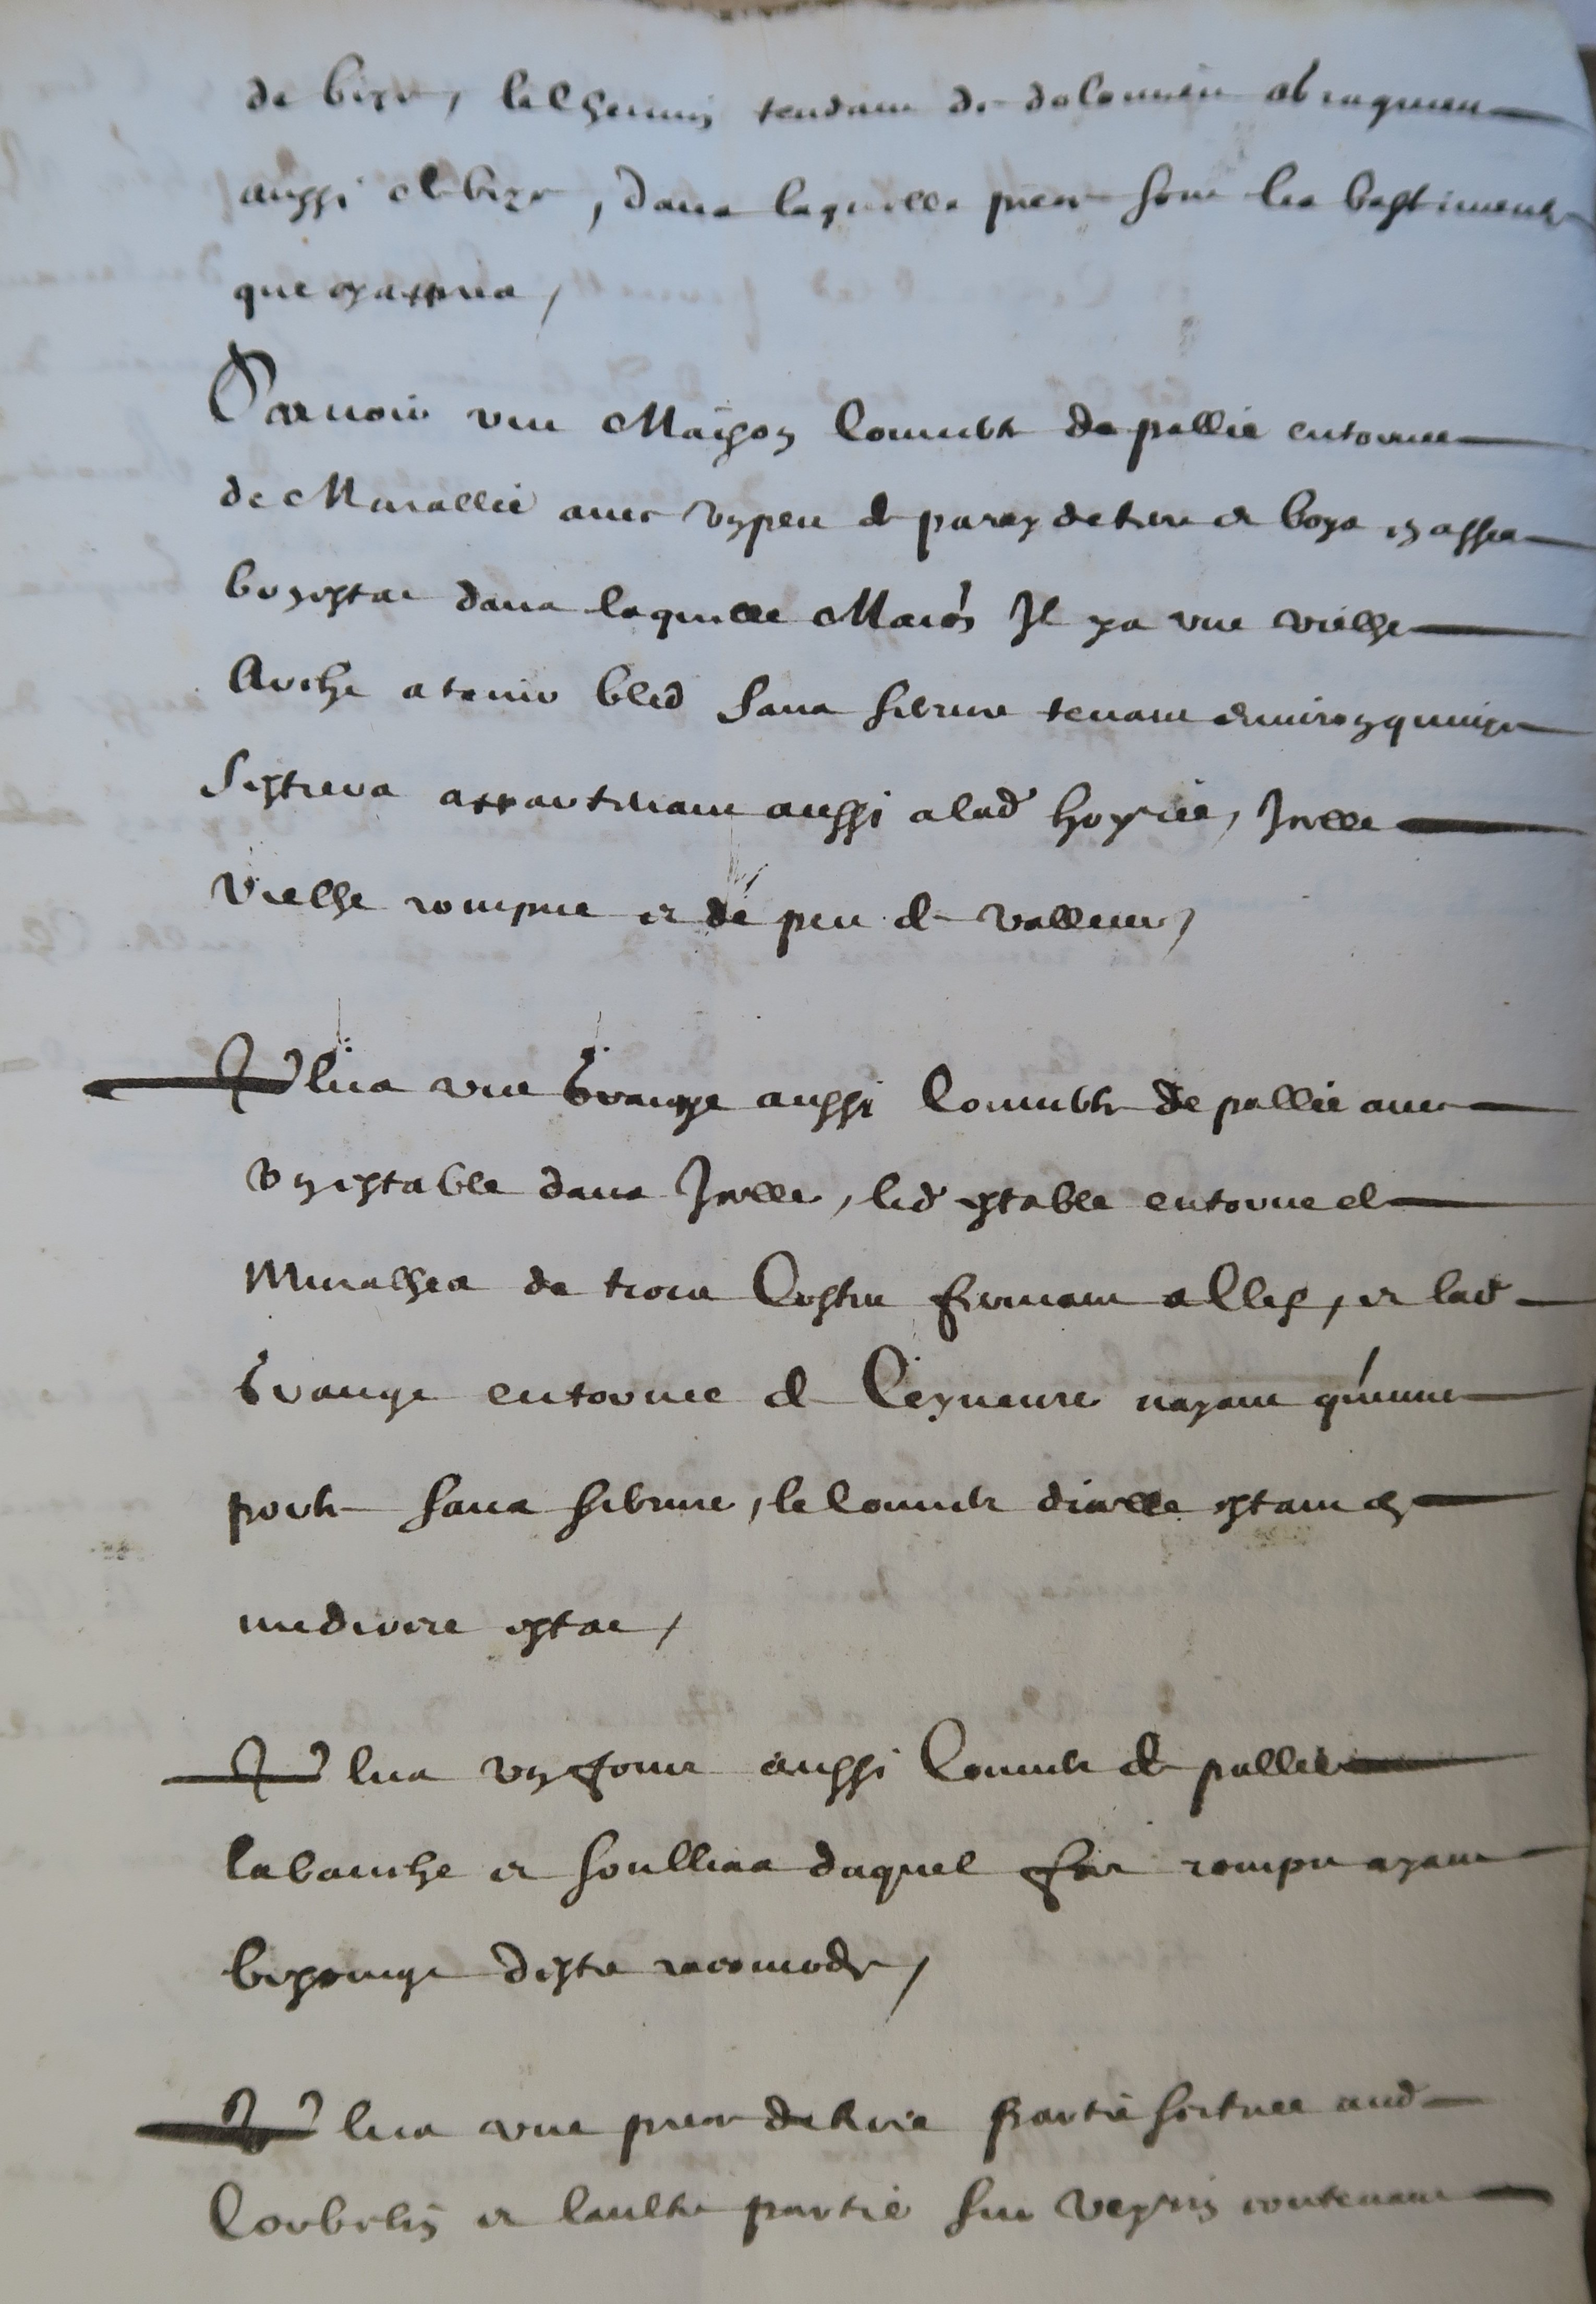 de bize, le chemin tendant de dolomieu a
aussi de bize, dans laquelle piece sont les bastiments
que cyappres,
Scavoir une Maison couverte de pallie entournee
de Murallie avec un peu de parey de terre et boys en asses
bon estat dans laquelle Maison Il y a une vielhe
Arche a tenir bled sans serrure tenant environ quinze
sestiers appartenant aussi a lad hoyrie, Icelle
vielhe rompue et de peu de valleur,
Plus une Grange aussi couverte de pallie avec
un estable dans Icelle, led estable entourne de
Muralhes de trois costes fermant a clef, et lad
Grange entournee de n'ayant qu'une
porte sans serrure, le couvert d'icelle estant en
mediocre estat,
Plus un four aussi couvert de pallie
la bauche et soullias duquel sont rompu ayant
besoingt d'estre racomode,
Plus une piece de terre partie scituee aud
Corbelin et l'aultre partie sur Veyrin contenant